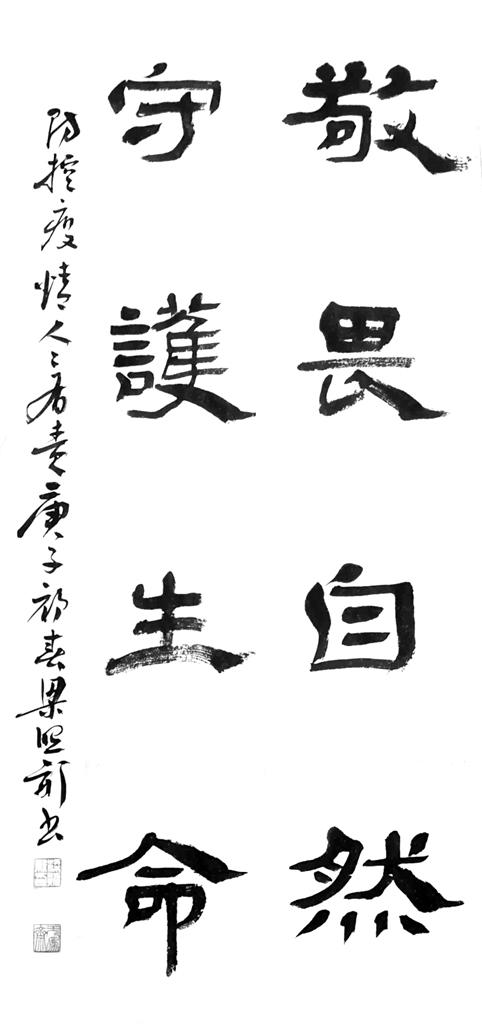 敬畏自然
守護生命
防控疫情人人有责庚子初春梁照
书